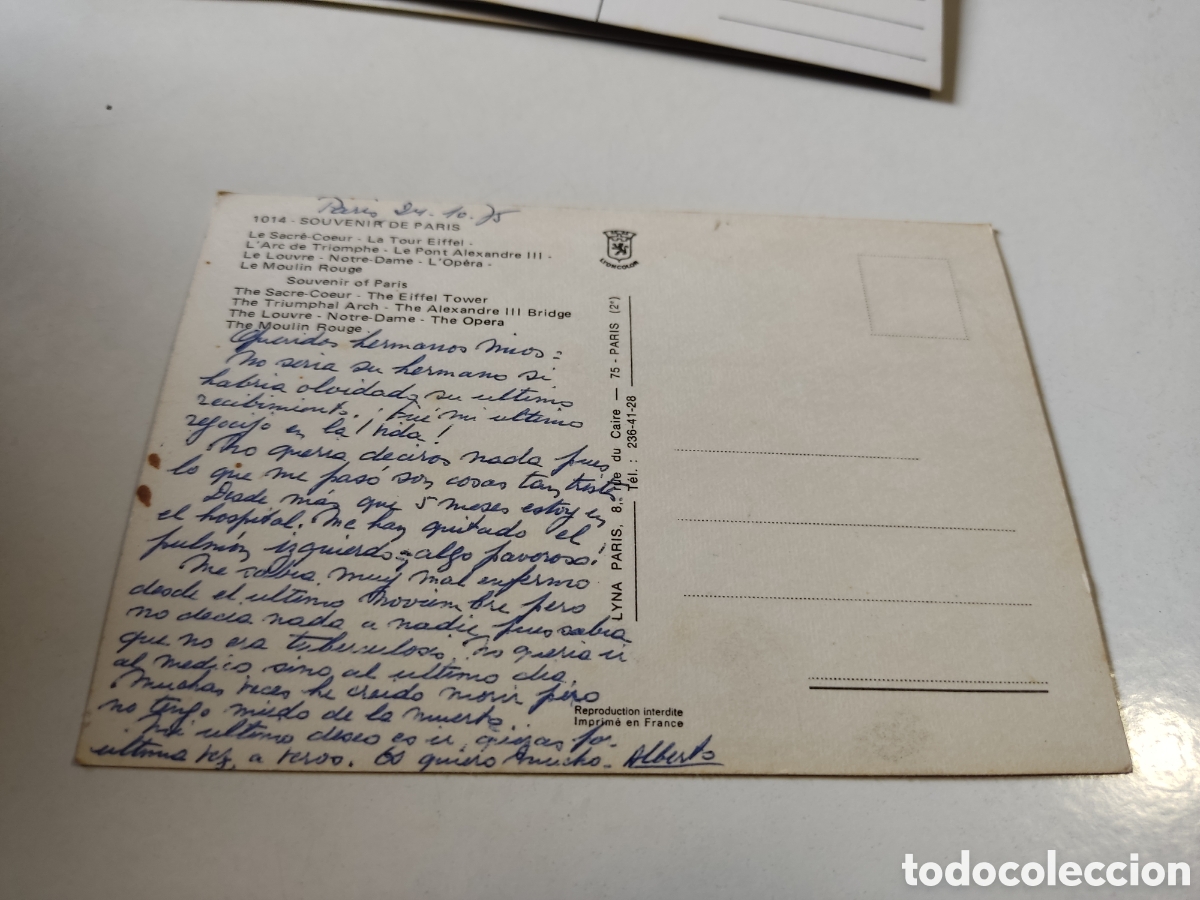 Paris 24-10-75
1014 - SOUVENIR DE PARIS
Le Sacré-Coeur - La Tour Eiffel -
L'Arc de Triomphe - Le Pont Alexandre III -
Le Louvre - Notre-Dame - L'Opéra -
Le Moulin Rouge
Souvenir of Paris
The Sacre-Coeur - The Eiffel Tower
The Triumphal Arch - The Alexandre III Bridge
The Louvre - Notre-Dame - The Opera
The Moulin Rouge
Queridos hermanos mios=
No seria su hermano si
habria olvidado su ultimo
recibimiento. ¡Fué mi ultimo
regocijo en la vida!
No queria deciros nada pues
lo que me pasó son cosas tan tristes
Desde más que 5 meses estoy en
el hospital. Me han quitado el
pulmón izquierdo, algo pavoroso!
Me sabia muy mal enfermo
desde el ultimo Noviembre pero
no decia nada a nadie pues sabia
que no era tuberculosis. No queria ir
al medico sino al ultimo dia.
Muchas veces he creido morir pero
no tengo miedo de la muerte.
Mi ultimo deseo es ir, quizas por
ultima vez, a veros. Os quiero mucho. Alberto
LYONCOLOR
LYNA PARIS, 8, rue du Caire — 75 - PARIS (2e)
Tél. : 236-41-28
Reproduction interdite
Imprimé en France
todocoleccion